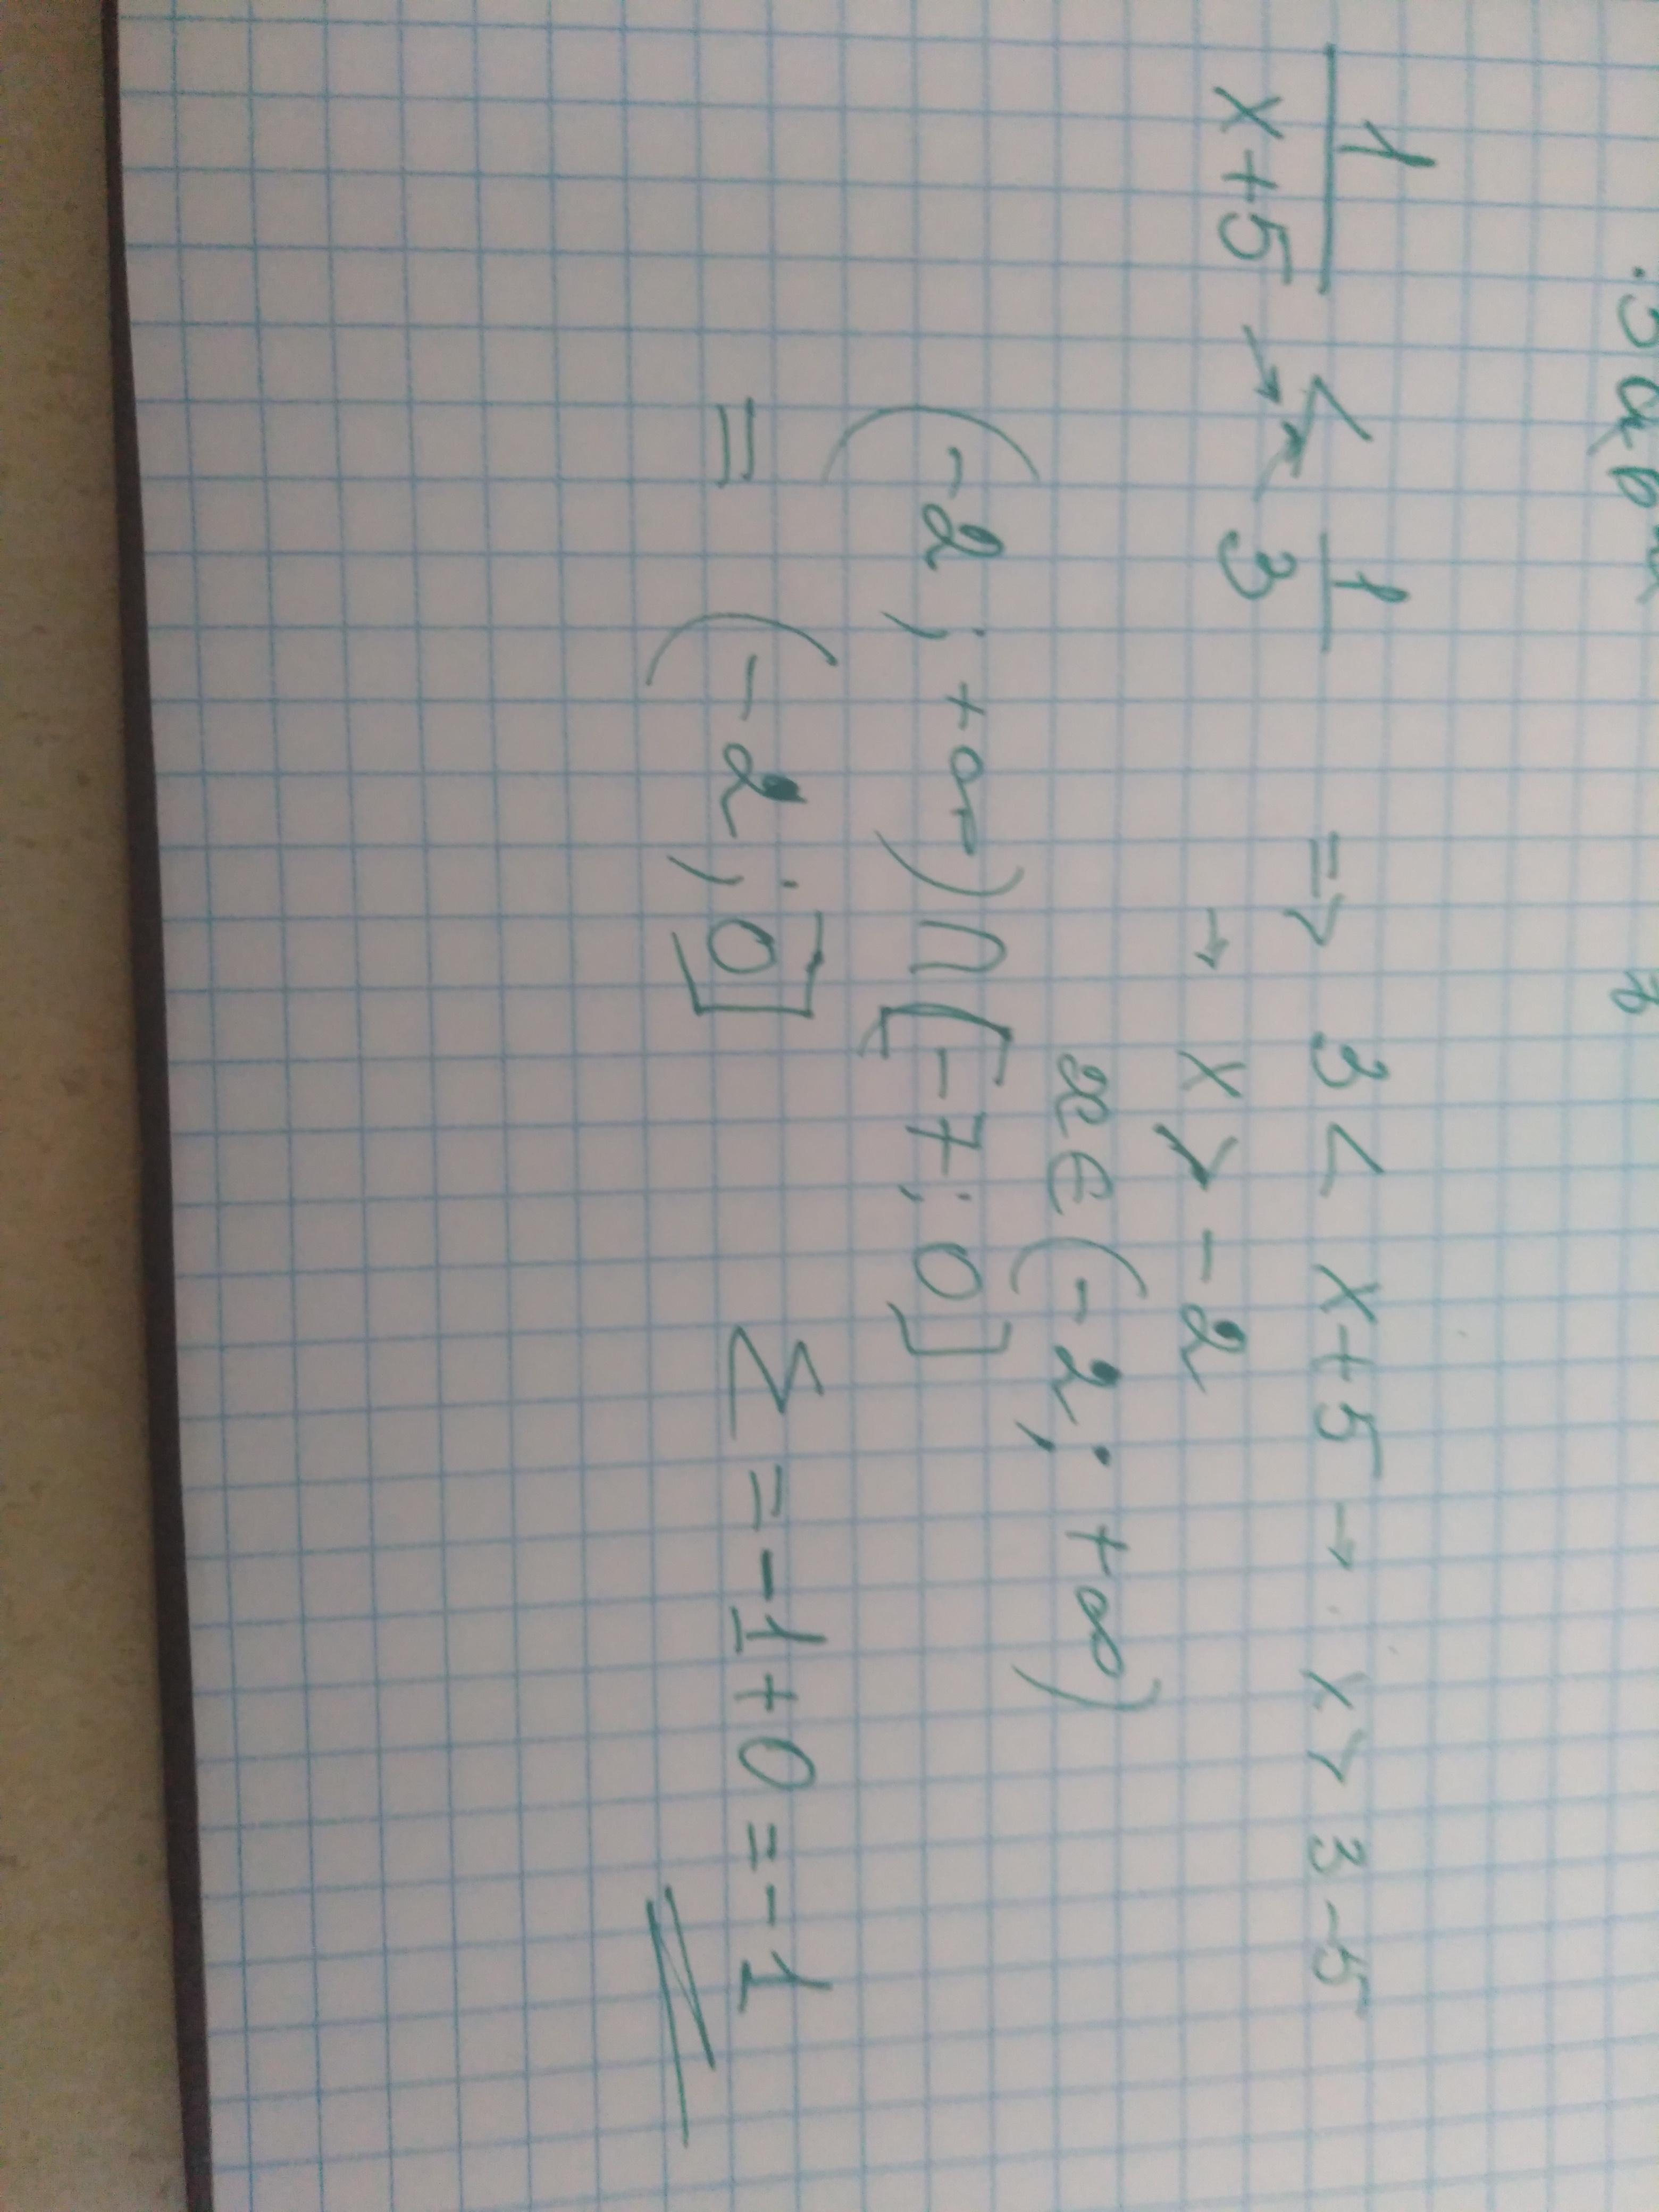 1/(x+5) < 1/3 => 3 < x+5 → x > 3-5
→ x > -2
x ∈ (-2; +∞)
(-2; +∞) ∩ [-7; 0]
= (-2; 0] Σ = -1+0 = -1